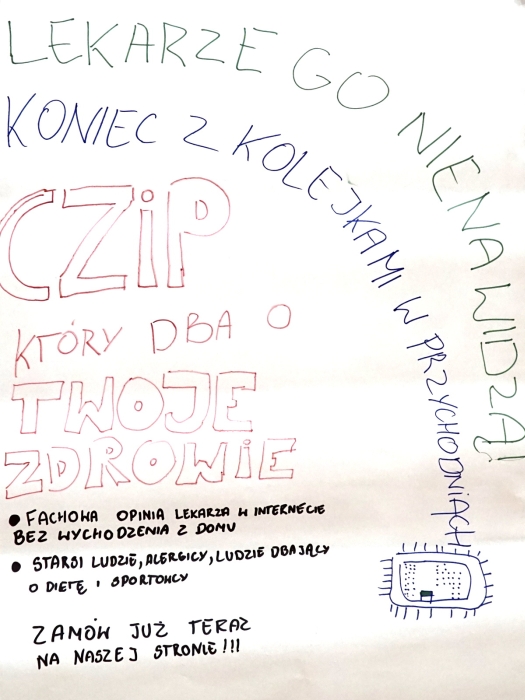 LEKARZE GO NIENAWIDZĄ!
KONIEC Z KOLEJKAMI W PRZYCHODNIACH
CZiP
KTÓRY DBA O
TWOJE
ZDROWiE
● FACHOWA OPINIA LEKARZA W INTERNECIE
BEZ WYCHODZENIA Z DOMU
● STARSI LUDZIE, ALERGICY, LUDZIE DBAJĄCY
O DIETĘ I SPORTOWCY
ZAMÓW JUŻ TERAZ
NA NASZEJ STRONIE!!!